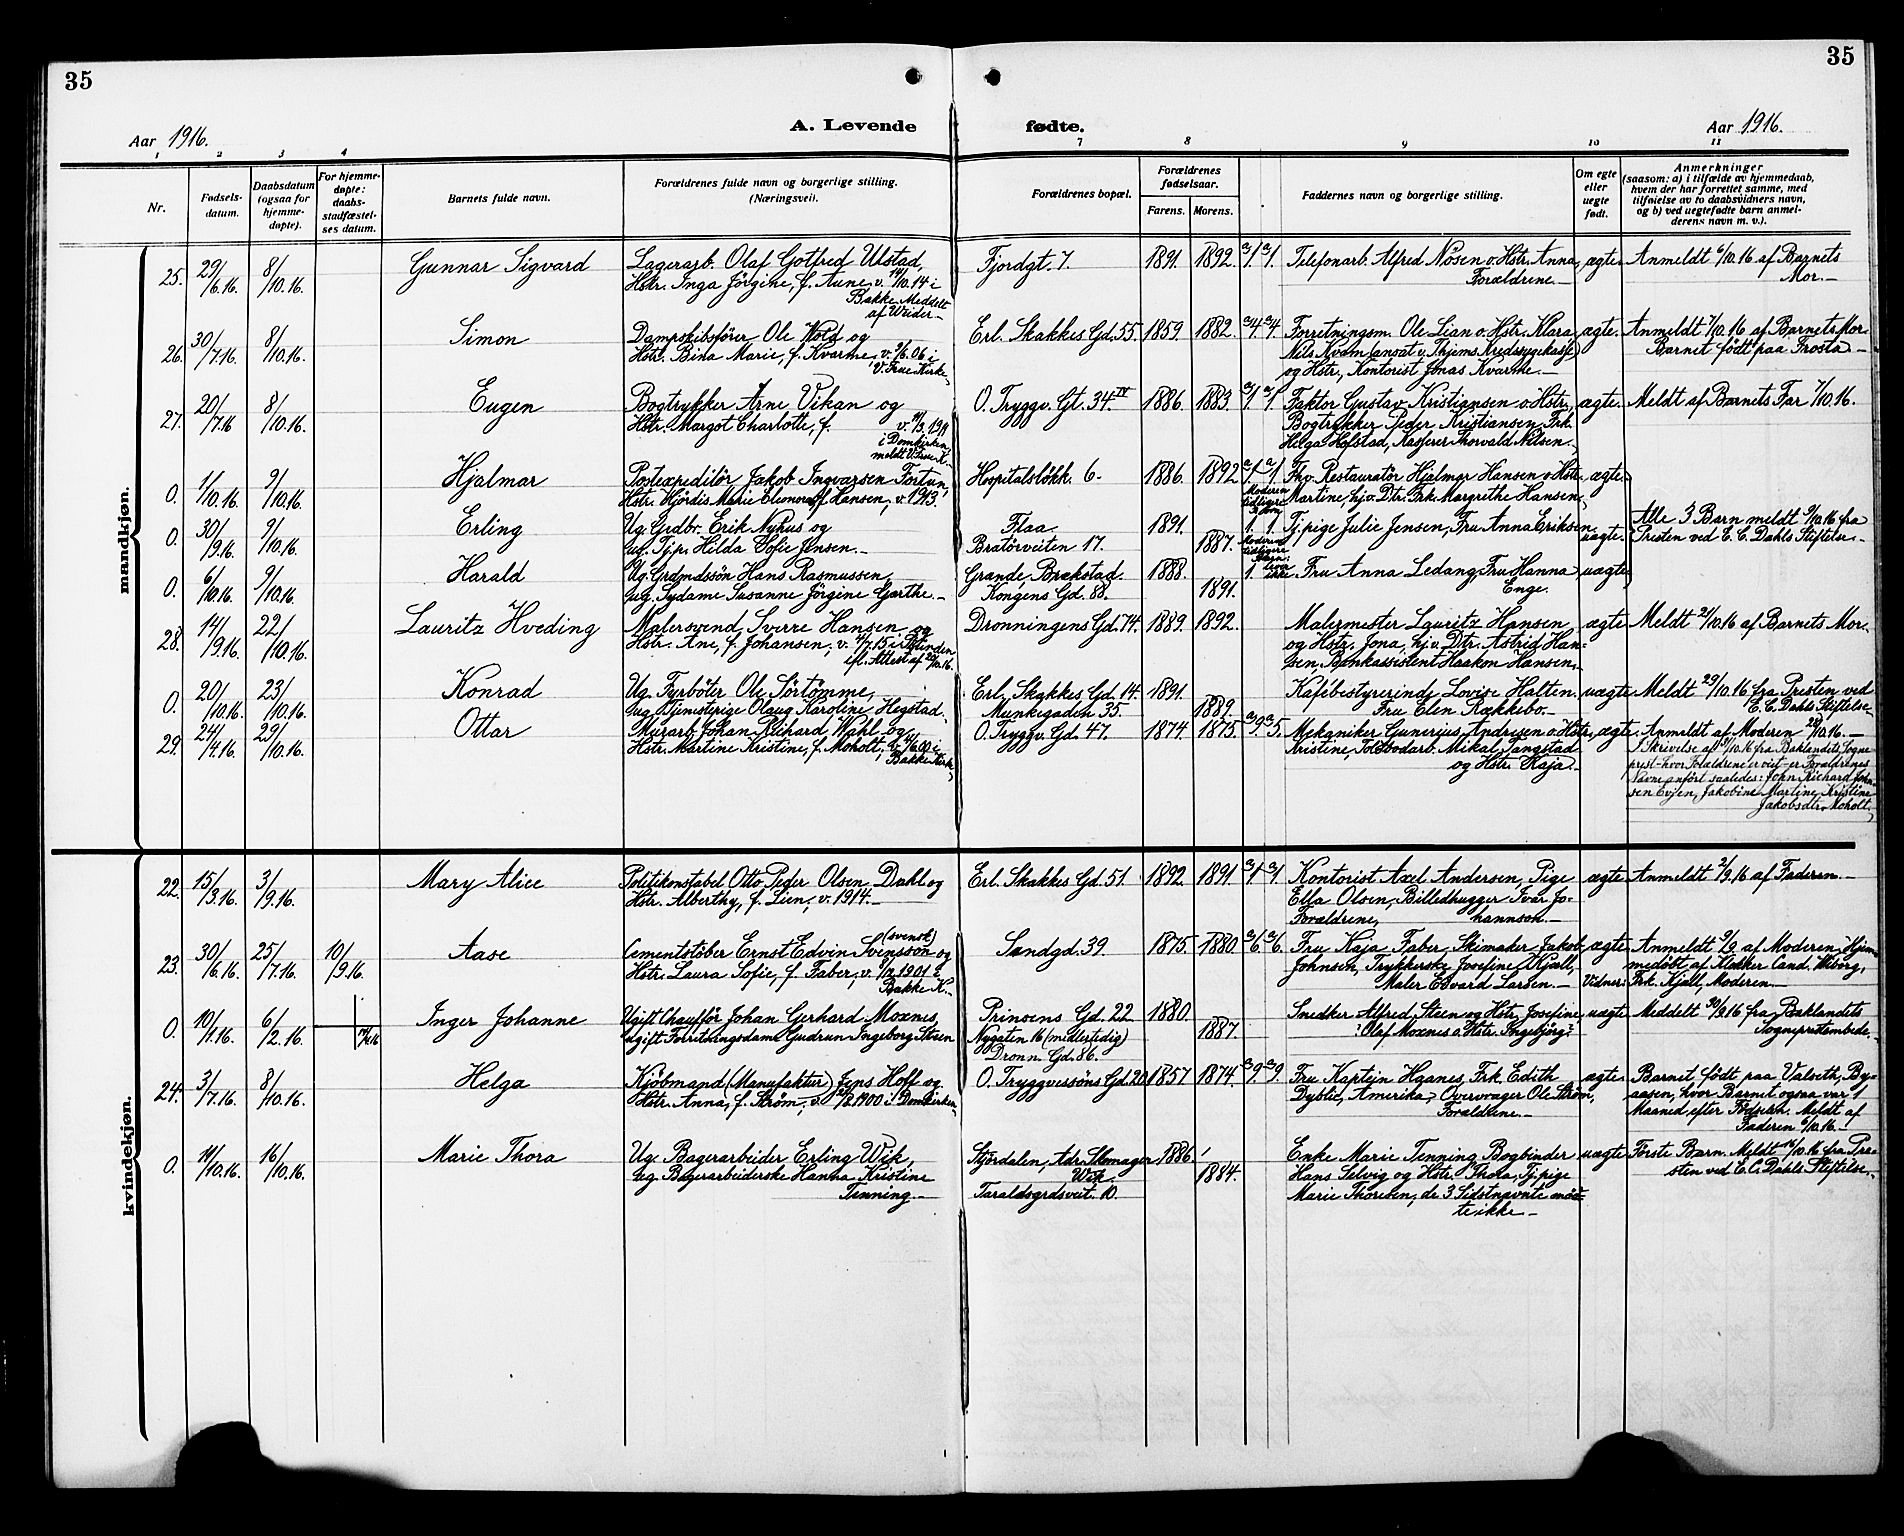 35
35
Aar 1916.
A. Levende
fødte.
Aar 1916.
1 2 3 4
7 8 9 10 11
Nr.
Fødsels-
datum.
Daabsdatum
(ogsaa for
hjemme-
døpte).
For hjemme-
døpte:
daabs-
stadfæstel-
ses datum.
Barnets fulde navn.
Forældrenes fulde navn og borgerlige stilling.
(Næringsvei).
Forældrenes bopæl.
Forældrenes
fødselsaar.
Farens. Morens.
Faddernes navn og borgerlige stilling.
Om egte
eller
uegte
født.
Anmerkninger
(saasom: a) i tilfælde av hjemmedaab,
hvem der har forrettet samme, med
tilføielse av to daabsvidners navn,
og b) ved uegtefødte barn anmel-
derens navn m. v.).
mandkjøn.
25. 29/6.16. 8/10.16. Gunnar Sigvard
Lagerarb. Olaf Gotfred Ulstad,
Hstr. Inga Jörgine, f. Aune, v. 14/10.14 i
Bakke. Meddelt
af
Fjordgt. 7. 1891. 1892. a/1. a/1.
Telefonarb. Alfred Nösen o. Hstr. Anna,
Forældrene.
ægte.
Anmeldt 6/10.16 af Barnets
Mor.
26. 30/7.16. 8/10.16. Simon
Dampskibsförer Ole Wold og
Hstr. Bina Marie, f. Kvarme, v. 3/6.06 i
V. Frue Kirke,
Erl. Skakkes Gd. 55. 1859. 1882. a/4. a/4.
Forretningsm. Ole Lian o. Hstr. Klara
Nils Kvam (ansat v. Thjems Kredssygekasse)
og Hstr., Kontorist Jonas Kvarme.
ægte.
Anmeldt 7/10.16 af Barnets Mor.
Barnet födt paa Frosta
27. 20/7.16 8/10.16. Eugen
Bogtrykker Arne Vikan og
Hstr. Margot Charlotte, f. v. 11/3.1911
i Domkirken,
meldt V. Frue K.
O. Tryggv. Gt. 34.IV 1886. 1883. a/1. a/1.
Faktor Gustav Kristiansen o. Hstr.,
Bogtrykker Peder Kristiansen, Frk.
Helga Hofstad, Kasserer Thorvald Nilsen.
ægte.
Meldt af Barnets Far 7/10.16.
0. 1/10.16. 9/10.16. Hjalmar
Postexpeditör Jakob Ingvarsen Fortun,
Hstr. Hjördis Marie Eleonora f. Hansen, v. 1913.
Hospitalslökk. 6. 1886. 1892. a/1. a/1.
Fhv. Restauratör Hjalmar Hansen o. Hstr.
Martine, hjv. Dtr. Frk. Margrethe Hansen,
ægte.
0. 30/9.16. 9/10.16. Erling
Ug. Grdbr. Erik Nyhus og
ug. Tj.p. Hilda Sofie Jensen.
Flaa.
Bratörveiten 17.
1891.
1887.
Moderen
tidligere
1. 1.
Tj.pige Julie Jensen, Fru Anna Eriksen,
uægte.
Alle 3 Barn meldt 9/10.16 fra
Presten ved E. C. Dahls Stiftelse.
0. 6/10.16. 9/10.16. Harald
Ug. Grdmdssön Hans Rasmussen,
ug. Sydame Susanne Jörgine Garthe.
Grande, Brækstad.
Kongens Gd. 88.
1888.
1891.
Moderen
tidligere
1. ikke
Fru Anna Ledang, Fru Hanna
Enge.
uægte
28. 14/9.16. 22/10.16. Lauritz Hveding
Malersvend Sverre Hansen og
Hstr. Ane, f. Johansen, v. 11/7.15 i Bestunden
efl. Attest af 20/10.16.
Dronningens Gd. 74. 1889. 1892.
Malermester Lauritz Hansen
og Hstr. Jona, hj.v. Dtr. Astrid Han-
sen, Bankassistent Haakon Hansen.
ægte
Meldt 21/10.16 af Barnets Mor.
0. 20/10.16. 23/10.16. Konrad
Ug. Fyrböter Ole Sörtömme,
ug. Tjenestepige Olaug Karoline Hegstad.
Erl. Skakkes Gd. 14.
Munkegaden 35.
1891.
1889.
Kafébestyrerinde Lovise Halten.
Fru Elen Rækkebo.
uægte
Meldt 29/10.16 fra Presten ved
E. C. Dahls Stiftelse.
29. 24/4.16. 29/10.16. Ottar
Murarb. Johan Richard Wahl og
Hstr. Martine Kristine, f. Moholt, v. 4/6.00 i
Bakke Kirke,
O. Tryggv. Gd. 47. 1874. 1875. a/9. a/5.
Mekaniker Gunerius Andresen o. Hstr.
Kristine, Toldbodarb. Mikal Tangstad
og Hstr. Kaja.
ægte.
Anmeldt af Moderen 28/10.16.
I Skrivelse af 31/10.16 fra Baklandets Sogne
prest hvor Forældrene er viet er Forældrenes
Navne anfört saaledes: John Richard John-
sen Evjen, Jakobine Martine Kristine
Jakobsdtr. Moholt.
kvindekjøn.
22. 15/3.16. 3/9.16. Mary Alice
Politikonstabel Otto Peder Olsen Dahl og
Hstr. Alberthy, f. Lien, v. 1914.
Erl. Skakkes Gd. 51. 1892. 1891. a/1. a/1.
Kontorist Axel Andersen, Pige
Ella Olsen, Billedhugger Ivar Jo-
Forældrene, hannson.
ægte
Anmeldt 2/9.16 af Faderen.
23. 30/6.16. 25/7.16. 10/9.16. Aase
(svensk)
Cementstöber Ernst Edvin Svensson og
Hstr. Laura Sofie, f. Faber, v. 1/12.1901 i
Bakke K.
Sandgd. 39. 1875. 1880. a/6. a/6.
Fru Kaja Faber, Skimaker Jakob
Johnsen, Trykkerske Josefine Kjöll,
Maler Edvard Larsen.
ægte.
Vidner:
Anmeldt 9/9 af Moderen, Hjem-
medöbt af Klokker Cand. Wiborg,
Frk. Kjöll, Moderen.
0. 10/1.16. 6/2.16. Inger Johanne
Ugift Chaufför Johan Gerhard Moxnes,
ugift Forretningsdame Gudrun Ingeborg Steen
Prinsens Gd. 22
Nygaten 16 (midlertidig)
Dronn. Gd. 86.
1880.
1887.
Snedker Alfred Steen og Hstr. Josefine
Olaf Moxnes o. Hstr. Ingebjörg.
uægte
Meddelt 30/9.16 fra Baklandets
Sogneprestembede.
24. 3/7.16. 8/10.16. Helga
Kjöbmand (Manufaktur) Jens Hoff og
Hstr. Anna, f. Ström, v. /8.1900 i Domkirken.
O. Tryggvessöns Gd. 20 1857. 1874. a/9. a/9.
Fru Kaptejn Hganes, Frk. Edith
Dyblie, Amerika, Overvrager Ole Ström,
Forældrene.
ægte.
Barnet födt paa Valseth, By-
aasen, hvor Barnet ogsaa var 1
Maaned efter Födselen. Meldt af
Faderen 6/10.16.
0. 11/10.16. 16/10.16. Marie Thora
Ug. Bagerarbeider Erling Wik,
Ug. Bagerarbeiderske Hanna Kristine
Tenning.
Stjördalen, Adr. Skomager
Wik.
Taraldsgrdsveit. 10.
1886.
1884.
Enke Marie Tenning, Bogbinder
Hans Selvig og Hstr. Thora, Tj.pige
Marie Thoresen, de 3 Sidstnævnte möd-
te ikke.
uægte
Förste Barn. Meldt 16/10.16 fra Pre-
sten ved E. C. Dahls Stiftelse.